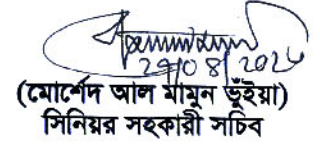 29/08/2024
(মোর্শেদ আল মামুন ভূঁইয়া)
সিনিয়র সহকারী সচিব